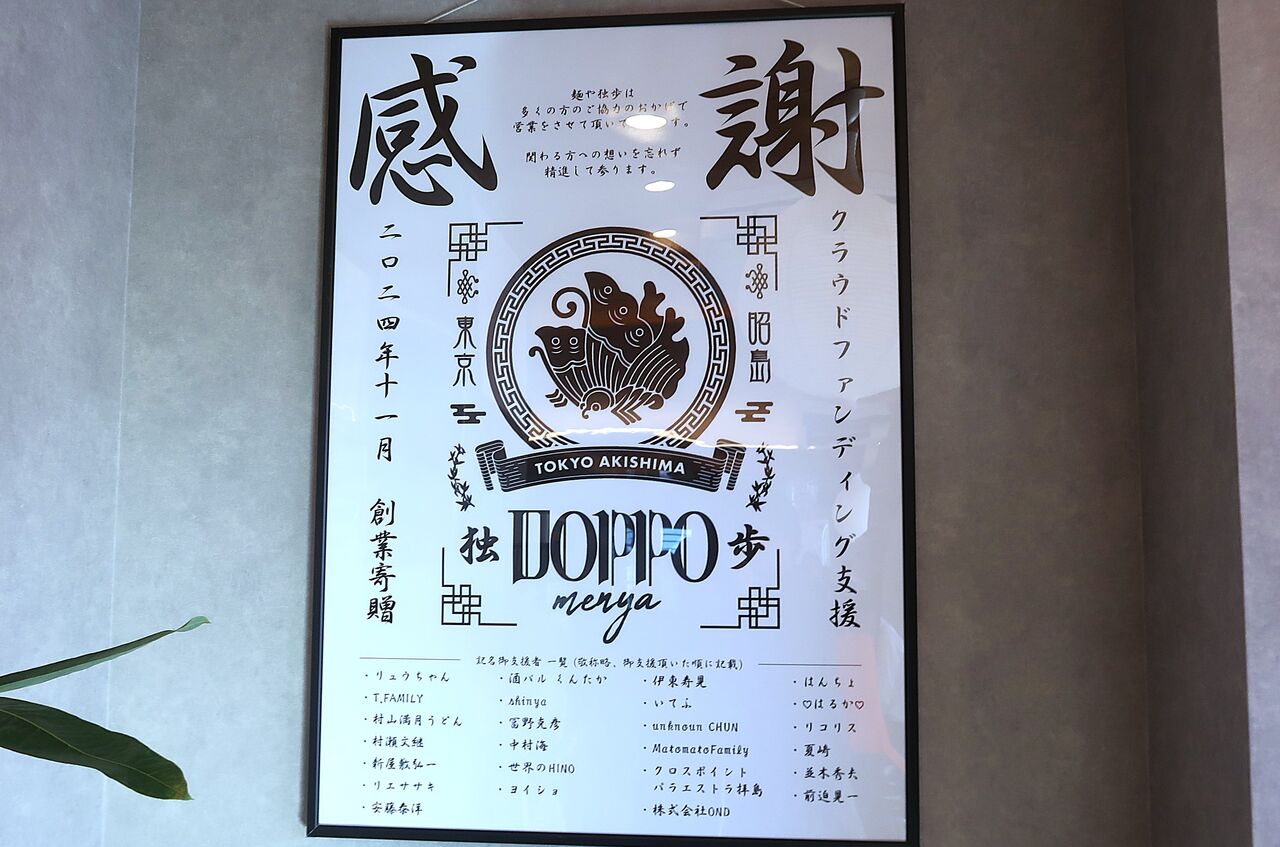 感謝
麺や独歩は
多くの方のご協力のおかげで
営業をさせて頂いております。
関わる方への想いを忘れず
精進して参ります。
クラウドファンディング支援
二〇二四年十一月 創業寄贈
東京
昭島
TOKYO AKISHIMA
独 DOPPO 歩
menya
記名御支援者一覧(敬称略、御支援頂いた順に記載)
・リュウちゃん
・T.FAMILY
・村山満月うどん
・村瀬文継
・新屋敷弘一
・リエササキ
・安藤泰洋
・酒バル くんたか
・shinya
・冨野克彦
・中村海
・世界のHINO
・ヨイショ
・伊東寿晃
・いてふ
・unknoun CHUN
・MatomatoFamily
・クロスポイント
パラエストラ拝島
・株式会社OND
・はんちょ
・♡はるか♡
・リコリス
・夏崎
・並木秀夫
・前迫晃一